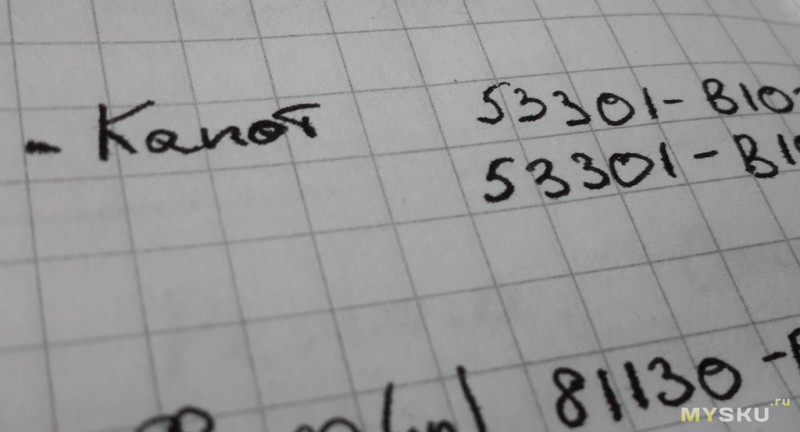 - Капот 53301-B10
53301-B1
81130-
MYSKU.ru